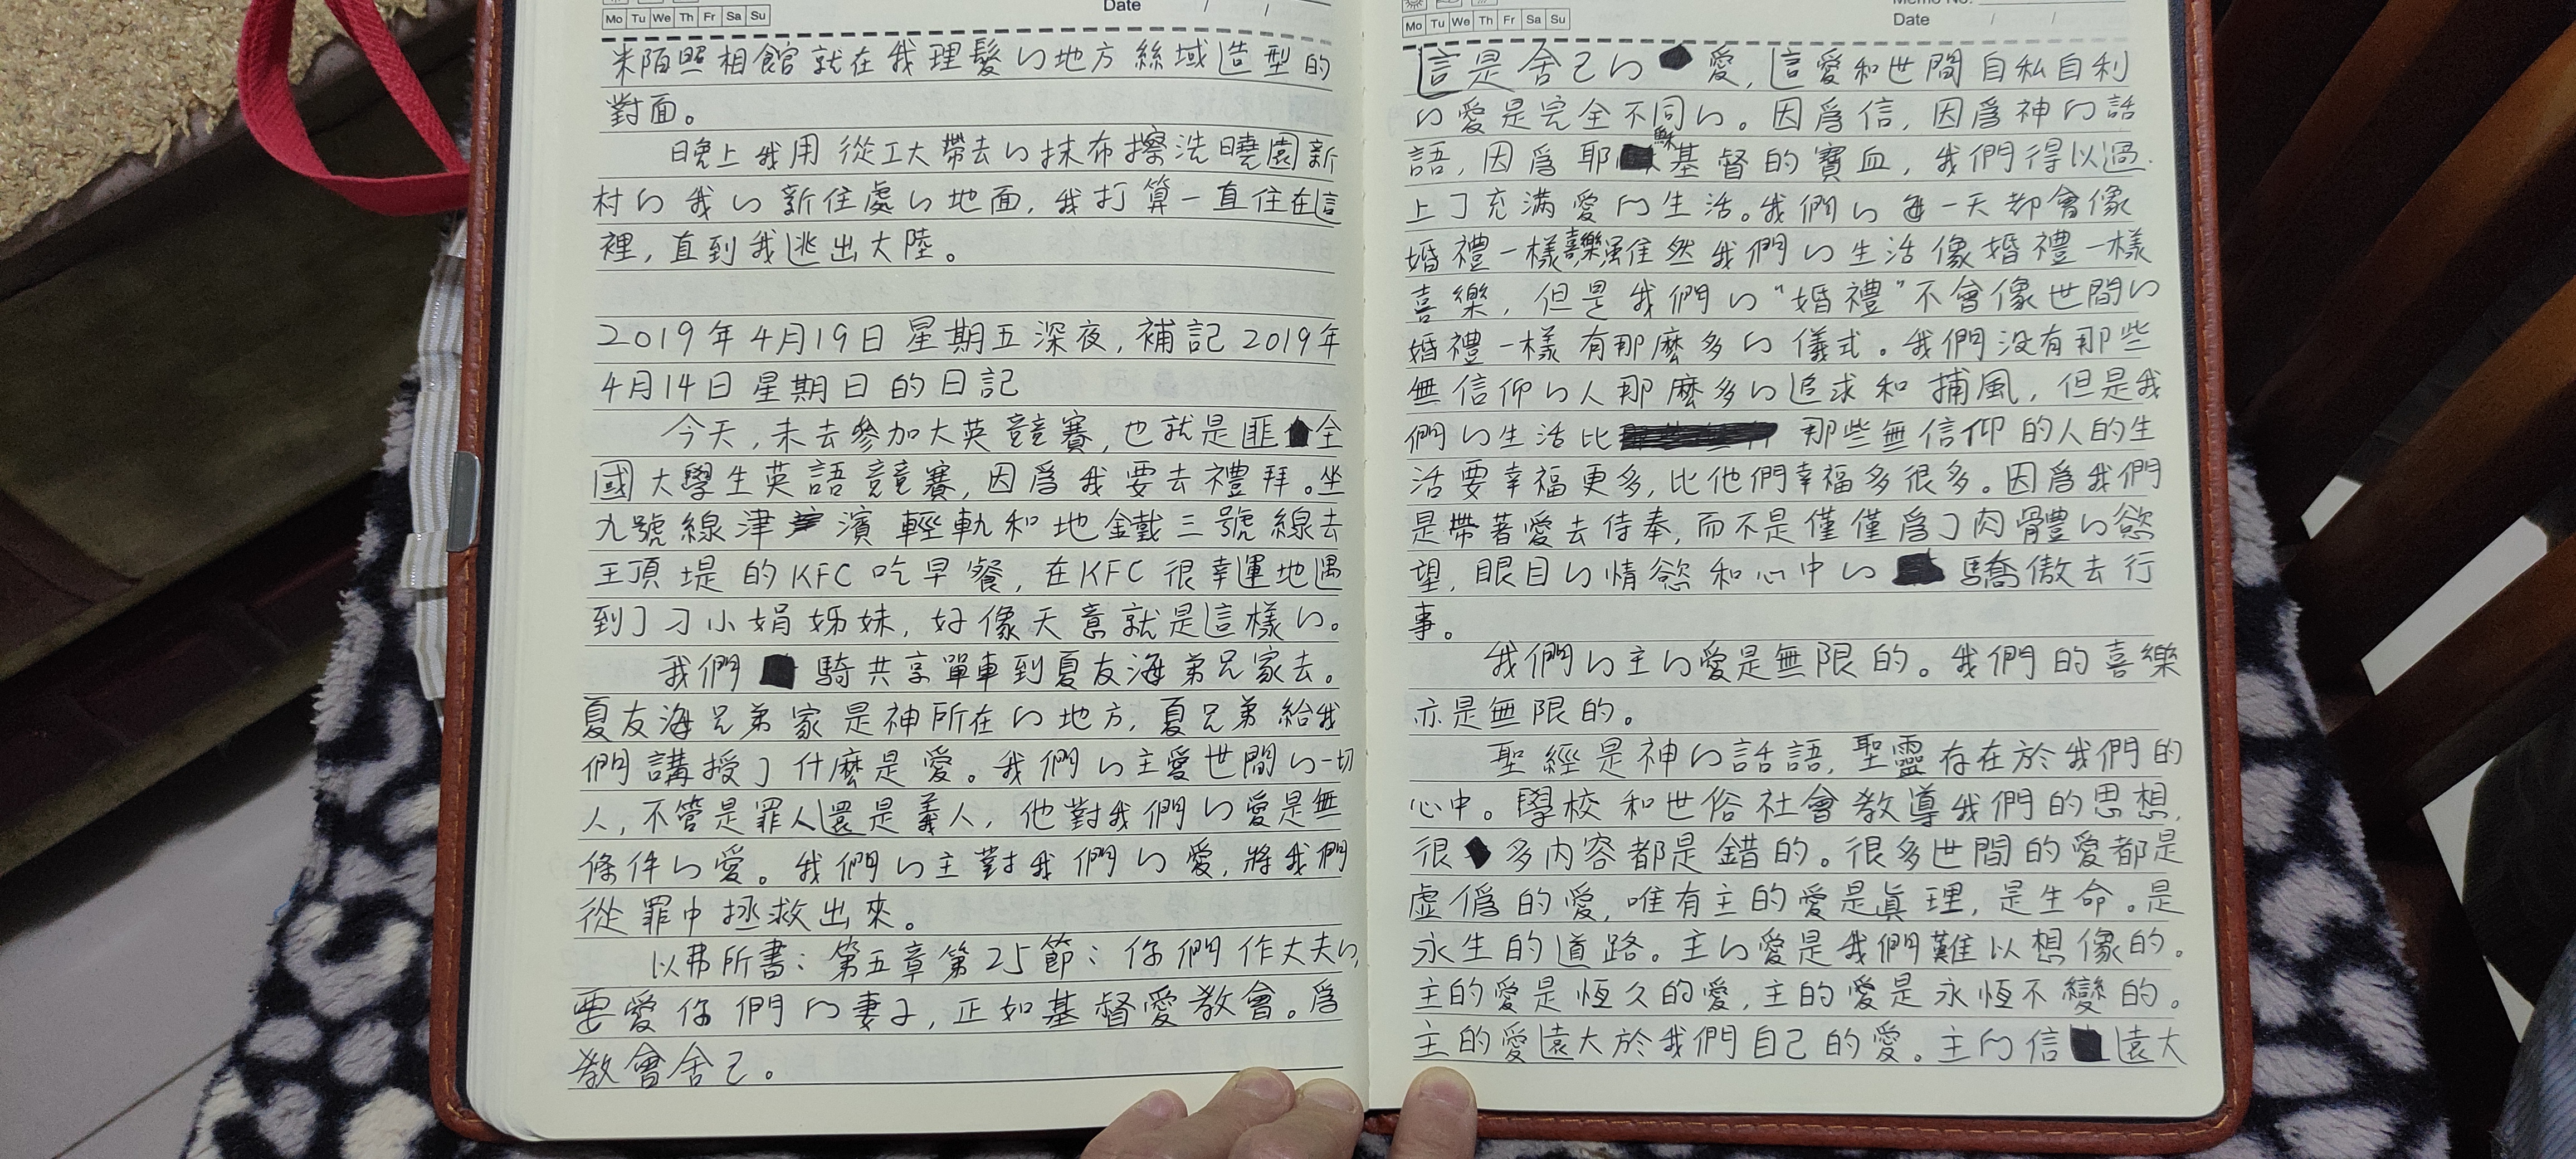 Date / /
Mo Tu We Th Fr Sa Su
米陌照相館就在我理髮的地方絲域造型的
對面。
晚上我用從工大帶去的抹布擦洗曉園新
村的我的新住處的地面,我打算一直住在這
裡,直到我逃出大陸。
2019年4月19日星期五深夜,補記2019年
4月14日星期日的日記
今天,未去參加大英競賽,也就是匪全
國大學生英語競賽,因爲我要去禮拜。坐
九號線津濱輕軌和地鐵三號線去
王頂堤的KFC吃早餐,在KFC很幸運地遇
到了刁小娟姊妹,好像天意就是這樣的。
我們騎共享單車到夏友海弟兄家去。
夏友海兄弟家是神所在的地方,夏兄弟給我
們講授了什麼是愛。我們的主愛世間的一切
人,不管是罪人還是義人,他對我們的愛是無
條件的愛。我們的主對我們的愛,將我們
從罪中拯救出來。
以弗所書:第五章第25節:你們作丈夫的,
要愛你們的妻子,正如基督愛教會。爲
教會舍己。
Memo No.
Date / /
Mo Tu We Th Fr Sa Su
這是舍己的愛,這愛和世間自私自利
的愛是完全不同的。因爲信,因爲神的話
語,因爲耶穌基督的寶血,我們得以過
上了充滿愛的生活。我們的每一天都會像
婚禮一樣喜樂雖然我們的生活像婚禮一樣
喜樂,但是我們的“婚禮”不會像世間的
婚禮一樣有那麼多的儀式。我們没有那些
無信仰的人那麼多的追求和捕風,但是我
們的生活比那些無信仰的人的生
活要幸福更多,比他們幸福多很多。因爲我們
是帶著愛去侍奉,而不是僅僅爲了肉體的慾
望,眼目的情慾和心中的驕傲去行
事。
我們的主的愛是無限的。我們的喜樂
亦是無限的。
聖經是神的話語,聖靈存在於我們的
心中。學校和世俗社會教導我們的思想,
很多内容都是錯的。很多世間的愛都是
虛僞的愛,唯有主的愛是眞理,是生命。是
永生的道路。主的愛是我們難以想像的。
主的愛是恆久的愛,主的愛是永恆不變的。
主的愛遠大於我們自己的愛。主的信遠大